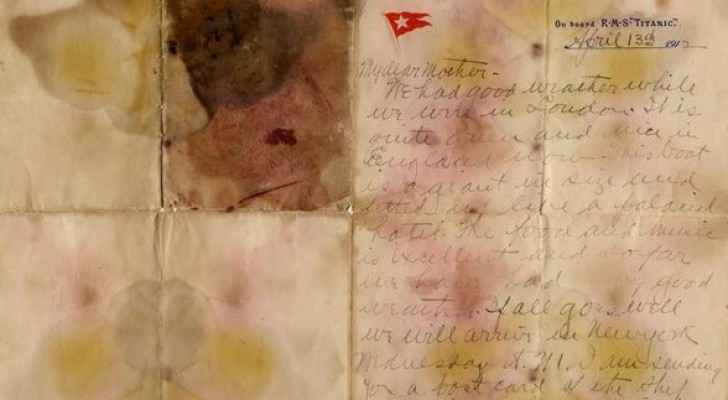 On board R·M·S·"TITANIC".
April 13th 1912
My dear Mother-
We had good weather while
we were in London. It is
quite green and nice in
England now. This boat
is a giant in size and
fitted up like a palacial
hotel. The food and music
is excellent and so far
we have had good
weather. If all goes well
we will arrive in New York
Wednesday A.M. I am sending
you a post card of the ship